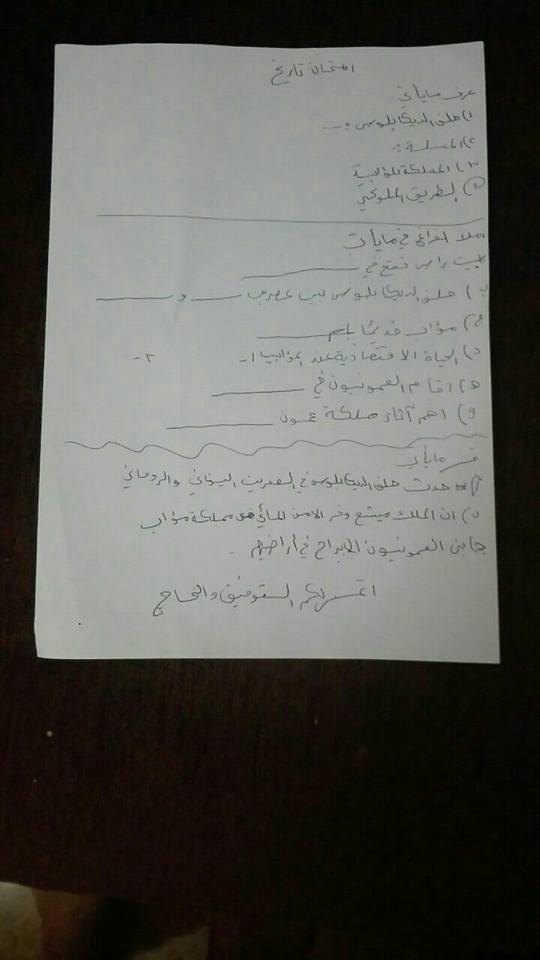 امتحان تاريخ
عرف مايأتي
١) حلف الديكابلوس :-
٢) المسلة :
٣) المملكة المؤابية
٤) الطريق الملوكي
املأ الفراغ في مايأتي
راس تقع في ______
ب) حلف الديكابلوس بين عصرين ____ و ____
ج) مؤاب قديمًا باسم ______
د) الحياة الاقتصادية عند المؤابيين ١- ٢-
ه) اقام العمونيون في ______
و) اهم آثار مملكة عمون ______
فسر مايأتي
أ) حدث حلف الديكابلوس في العصرين اليوناني والروماني
ب) ان الملك ميشع وفر الامن المائي في مملكة مؤاب
ج) بنى العمونيون الابراج في أراضيهم .
اتمنى لكم التوفيق والنجاح